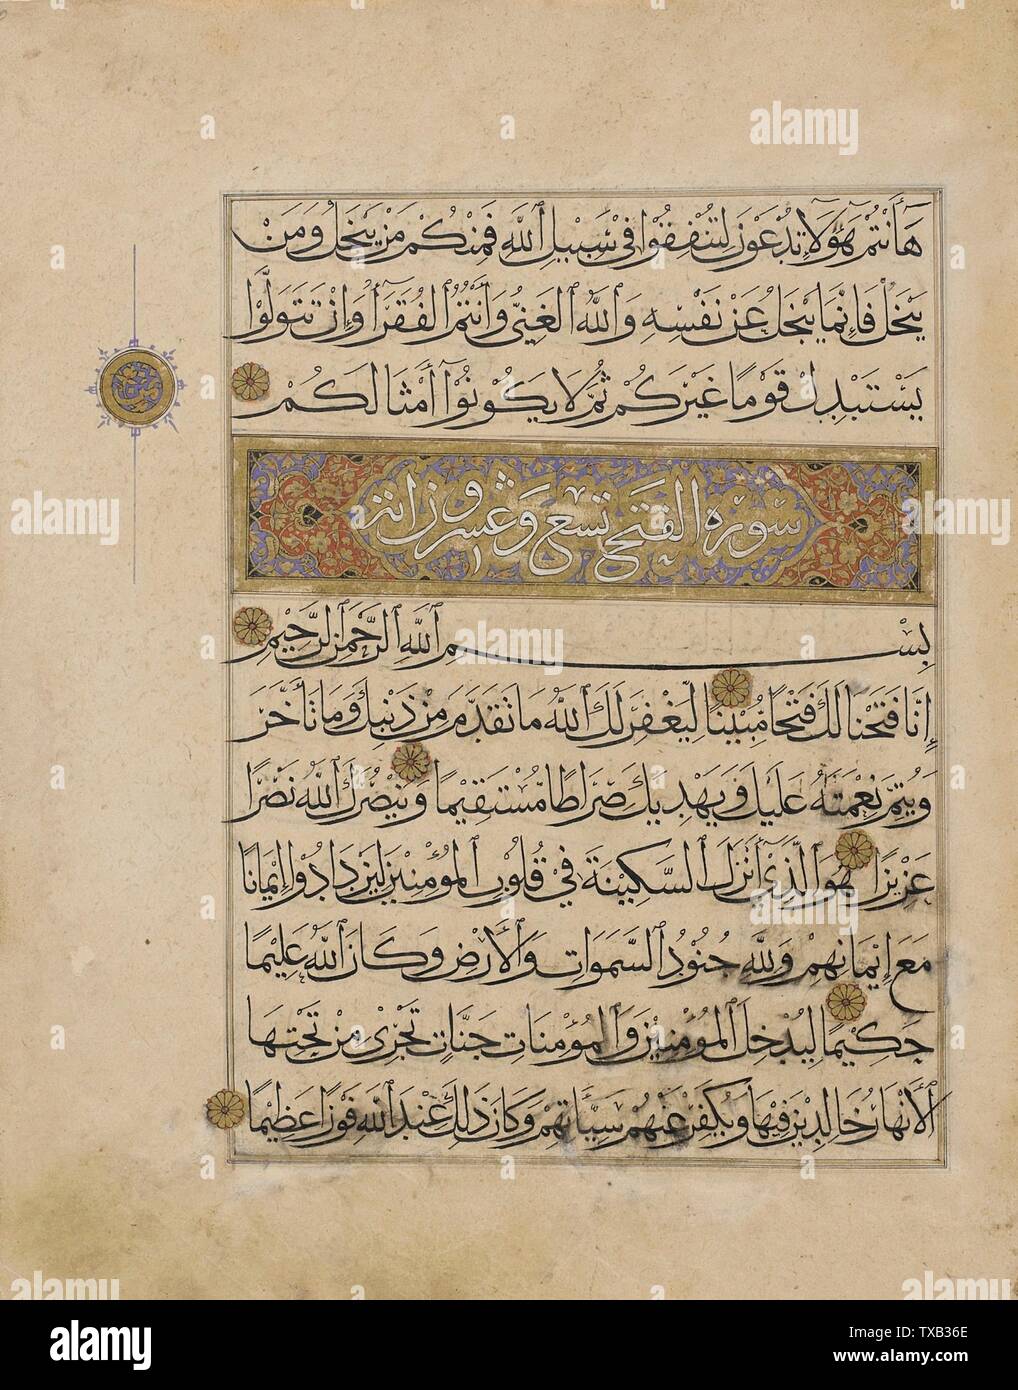 هَٰٓأَنتُمْ هَٰٓؤُلَآءِ تُدْعَوْنَ لِتُنفِقُوا فِي سَبِيلِ ٱللَّهِ فَمِنكُم مَّن يَبْخَلُ وَمَن
يَبْخَلْ فَإِنَّمَا يَبْخَلُ عَن نَّفْسِهِ وَٱللَّهُ ٱلْغَنِيُّ وَأَنتُمُ ٱلْفُقَرَآءُ وَإِن تَتَوَلَّوْا
يَسْتَبْدِلْ قَوْمًا غَيْرَكُمْ ثُمَّ لَا يَكُونُوٓا أَمْثَالَكُمْ
سورة الفتح تسع وعشرون آية
بِسْمِ ٱللَّهِ ٱلرَّحْمَٰنِ ٱلرَّحِيمِ
إِنَّا فَتَحْنَا لَكَ فَتْحًا مُّبِينًا لِّيَغْفِرَ لَكَ ٱللَّهُ مَا تَقَدَّمَ مِن ذَنبِكَ وَمَا تَأَخَّرَ
وَيُتِمَّ نِعْمَتَهُ عَلَيْكَ وَيَهْدِيَكَ صِرَاطًا مُّسْتَقِيمًا وَيَنصُرَكَ ٱللَّهُ نَصْرًا
عَزِيزًا هُوَ ٱلَّذِيٓ أَنزَلَ ٱلسَّكِينَةَ فِي قُلُوبِ ٱلْمُؤْمِنِينَ لِيَزْدَادُوٓا إِيمَانًا
مَعَ إِيمَانِهِمْ وَلِلَّهِ جُنُودُ ٱلسَّمَوَاتِ وَٱلْأَرْضِ وَكَانَ ٱللَّهُ عَلِيمًا
حَكِيمًا لِيُدْخِلَ ٱلْمُؤْمِنِينَ وَٱلْمُؤْمِنَاتِ جَنَّاتٍ تَجْرِي مِن تَحْتِهَا
ٱلْأَنْهَارُ خَالِدِينَ فِيهَا وَيُكَفِّرَ عَنْهُمْ سَيِّئَاتِهِمْ وَكَانَ ذَلِكَ عِندَ ٱللَّهِ فَوْزًا عَظِيمًا
alamy
Image ID: TXB36E
www.alamy.com